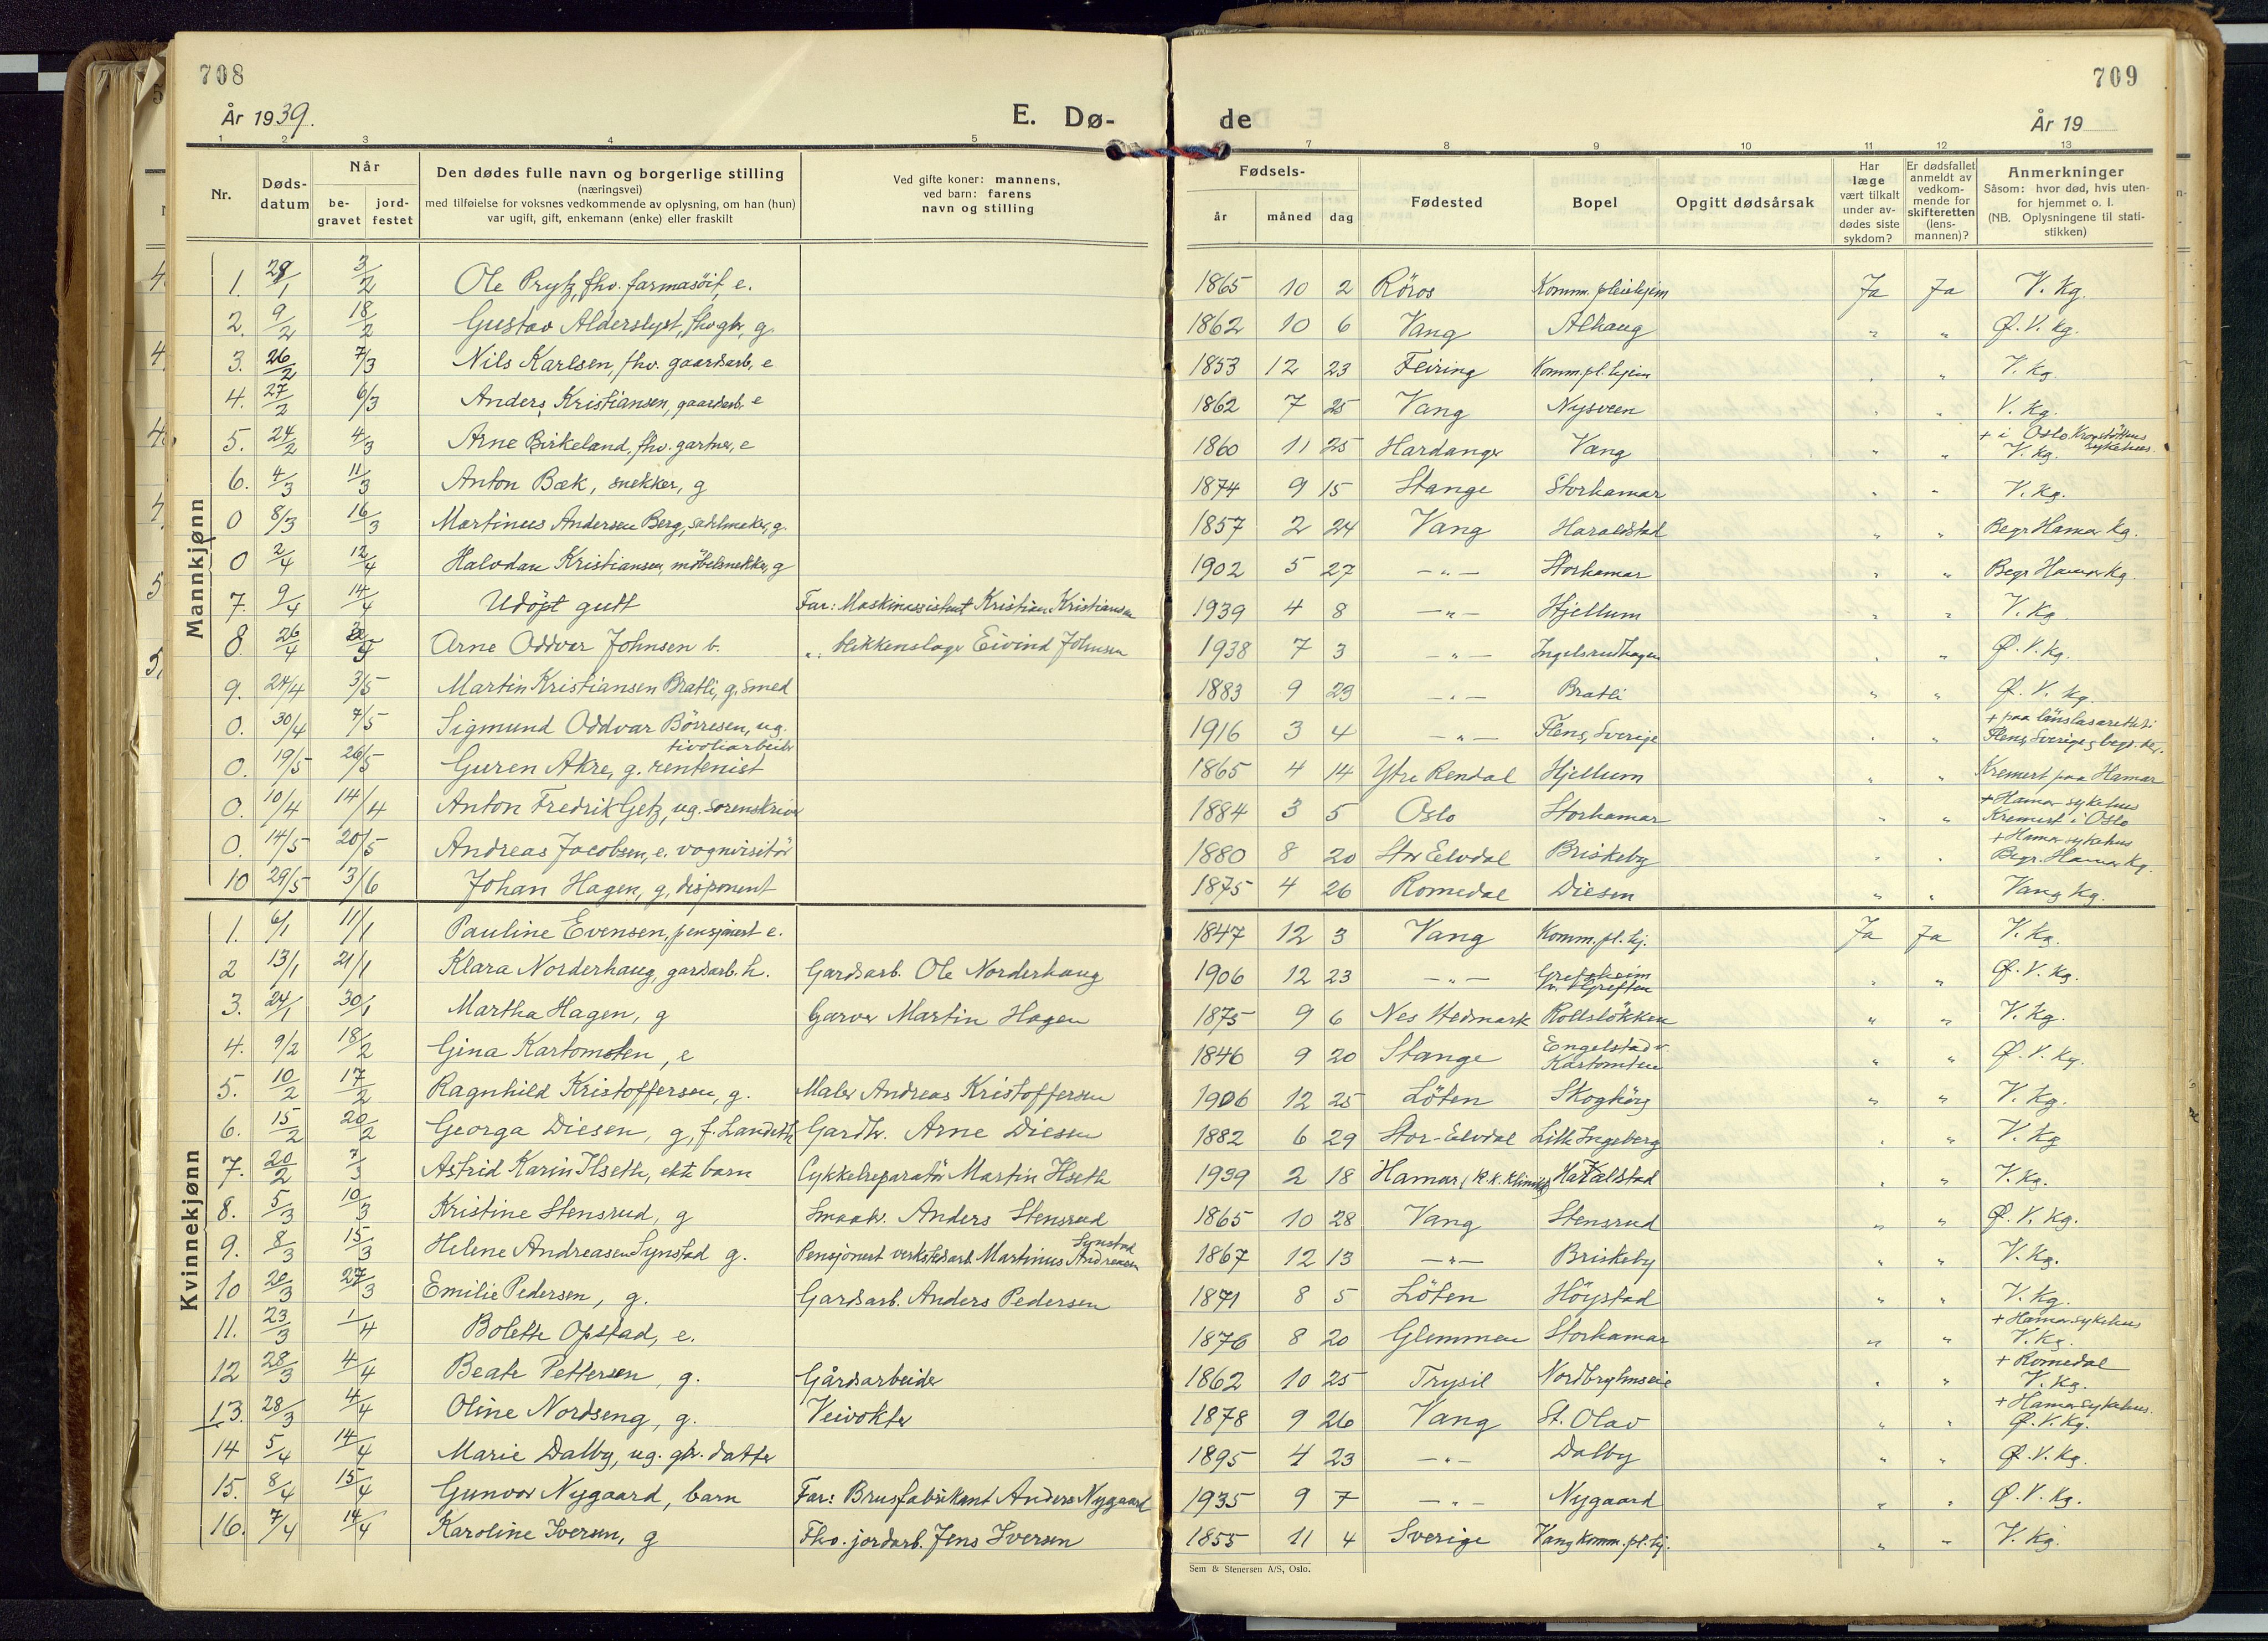 708
År 1939.
E. Dø-
1 2 3 4 5
Nr.
Døds-
datum
Når
be-
gravet
jord-
festet
Den dødes fulle navn og borgerlige stilling
(næringsvei)
med tilføielse for voksnes vedkommende av oplysning, om han (hun)
var ugift, gift, enkemann (enke) eller fraskilt
Ved gifte koner: mannens,
ved barn: farens
navn og stilling
Mannkjønn
1. 28/1 3/2 Ole Prytz, fhv. farmasöit, e.
2. 9/2 18/2 Gustav Alderslyst, fhv gbr, g.
3. 26/2 7/3 Nils Karlsen, fhv. gaardsarb, e
4. 27/2 6/3 Anders Kristiansen, gaardarb. e
5. 24/2 4/3 Arne Birkeland, fhv. gartner, e
6. 4/3 11/3 Anton Bæk, snekker, g
0 8/3 16/3 Martinus Andersen Berg, sadelmaker, g.
0 2/4 12/4 Halvdan Kristiansen, möbelsnekker, g
7. 9/4 14/4 Udöpt gutt Far: Maskinassistent Kristian Kristiansen
8. 26/4 Arne Oddvar Johnsen b. „: blikkenslager Eivind Johnsen
9. 24/4 3/5 Martin Kristiansen Bratli, g. smed
0. 30/4 7/5 Sigmund Oddvar Börresen, ug.
tivoliarbeider
0. 19/5 26/5 Guren Akre, g. rentenist
0. 10/4 14/4 Anton Fredrik Getz, ug. sorenskriver
0. 14/5 20/5 Andreas Jacobsen, e. vognvisitör
10 29/5 3/6 Johan Hagen, g, disponent
Kvinnekjønn
1. 6/1 11/1 Pauline Evensen, pensjonert e.
2 13/1 21/1 Klara Norderhaug, gardsarb. h. Gardsarb. Ole Norderhaug
3. 24/1 30/1 Martha Hagen, g Garver Martin Hagen
4. 9/2 18/2 Gina Kartomten, e
5. 10/2 17/2 Ragnhild Kristoffersen, g. Maler Andreas Kristoffersen
6. 15/2 20/2 Georga Diesen, g, f. Landeth Gardbr. Arne Diesen
7. 20/2 7/3 Astrid Karin Ilseth, ekte barn Cykkelreparatör Martin Ilseth
8. 5/3 10/3 Kristine Stensrud, g Smaabr. Anders Stensrud
9. 8/3 15/3 Helene Andreasen Synstad g. Pensjonert verkstedarb. Martinus Andreasen Synstad
10 20/3 27/3 Emilie Pedersen, g. Gardsarb. Anders Pedersen
11. 23/3 1/4 Bolette Opstad, e.
12 28/3 4/4 Beate Pettersen, g. Gårdsarbeider
13. 28/3 4/4 Oline Nordseng, g. Veivokter
14 5/4 14/4 Marie Dalby, ug. gbr. datter
15. 8/4 15/4 Gunvor Nygaard, barn Far: Brusfabrikant Anders Nygaard
16. 7/4 14/4 Karoline Iversen, g Fhv. jordarb. Jens Iversen
709
de
År 19
7 8 9 10 11 12 13
Fødsels-
år måned dag
Fødested
Bopel
Opgitt dødsårsak
Har
læge
vært tilkalt
under av-
dødes siste
sykdom?
Er dødsfallet
anmeldt av
vedkom-
mende for
skifteretten
(lens-
mannen)?
Anmerkninger
Såsom: hvor død, hvis uten-
for hjemmet o. l.
(NB. Oplysningene til stati-
stikken)
1865 10 2 Röros Komm. pleiehjem Ja Ja V. Kg.
1862 10 6 Vang Alhaug „ „ Ø. V. Kg.
1853 12 23 Feiring Komm.pl. hjem „ „ V. Kg.
1862 7 25 Vang Nysveen „ „ V. Kg.
1860 11 25 Hardanger Vang „ „ + i Oslo. sykehus.
V. Kg.
1874 9 15 Stange Storhamar „ „ V. Kg.
1857 2 24 Vang Haraldstad „ „ Begr Hamar Kg.
1902 5 27 —„— Storhamar „ „ Begr Hamar Kg.
1939 4 8 —„— Hjellum „ „ V. Kg.
1938 7 3 —„— Ingelsrudhagen „ „ Ø. V. Kg.
1883 9 23 —„— Bratli „ „ Ø. V. Kg.
1916 3 4 —„— Flens, Sverige „ „ + paa länslasarettet i
Flens, Sverige, begr. der.
1865 4 14 Ytre Rendal Hjellum „ „ Kremert paa Hamar
1884 3 5 Oslo Storhamar „ „ + Hamar sykehus
Kremert i Oslo
1880 8 20 Stor Elvdal Briskeby „ „ + Hamar sykehus
Begr. Hamar Kg.
1875 4 26 Romedal Diesen „ „ Vang Kg.
1847 12 3 Vang Komm. pl. hj. Ja Ja V. Kg.
1906 12 23 —„— Grefsheim
v. Greften „ „ Ø. V. Kg.
1875 9 6 Nes Hedmark Rollslökken „ „ V. Kg.
1846 9 20 Stange Engelstad v.
Kartomten „ „ Ø. V. Kg.
1906 12 25 Löten Skogborg „ „ V. Kg.
1882 6 29 Stor-Elvdal Lille Ingeberg „ „ V. Kg
1939 2 18 Hamar (R.K. Klinikk) Haraldstad „ „ V. Kg.
1865 10 28 Vang Stensrud „ „ Ø. V. Kg.
1867 12 13 —„— Briskeby „ „ V. Kg.
1871 8 5 Löten Höystad „ „ V. Kg.
1876 8 20 Glemmen Storhamar „ „ + Hamar sykehus
V. Kg.
1862 10 25 Trysil Nordbryhnseie „ „ + Romedal
V. Kg.
1878 9 26 Vang St. Olav „ „ + Hamar sykehus.
Ø. V. Kg.
1895 4 23 —„— Dalby „ „ Ø. V. Kg.
1935 9 7 —„— Nygaard „ „ Ø. V. Kg.
1855 11 4 Sverige Vang komm. pl. hj. „ „ V. Kg.
Sem & Stenersen A/S, Oslo.